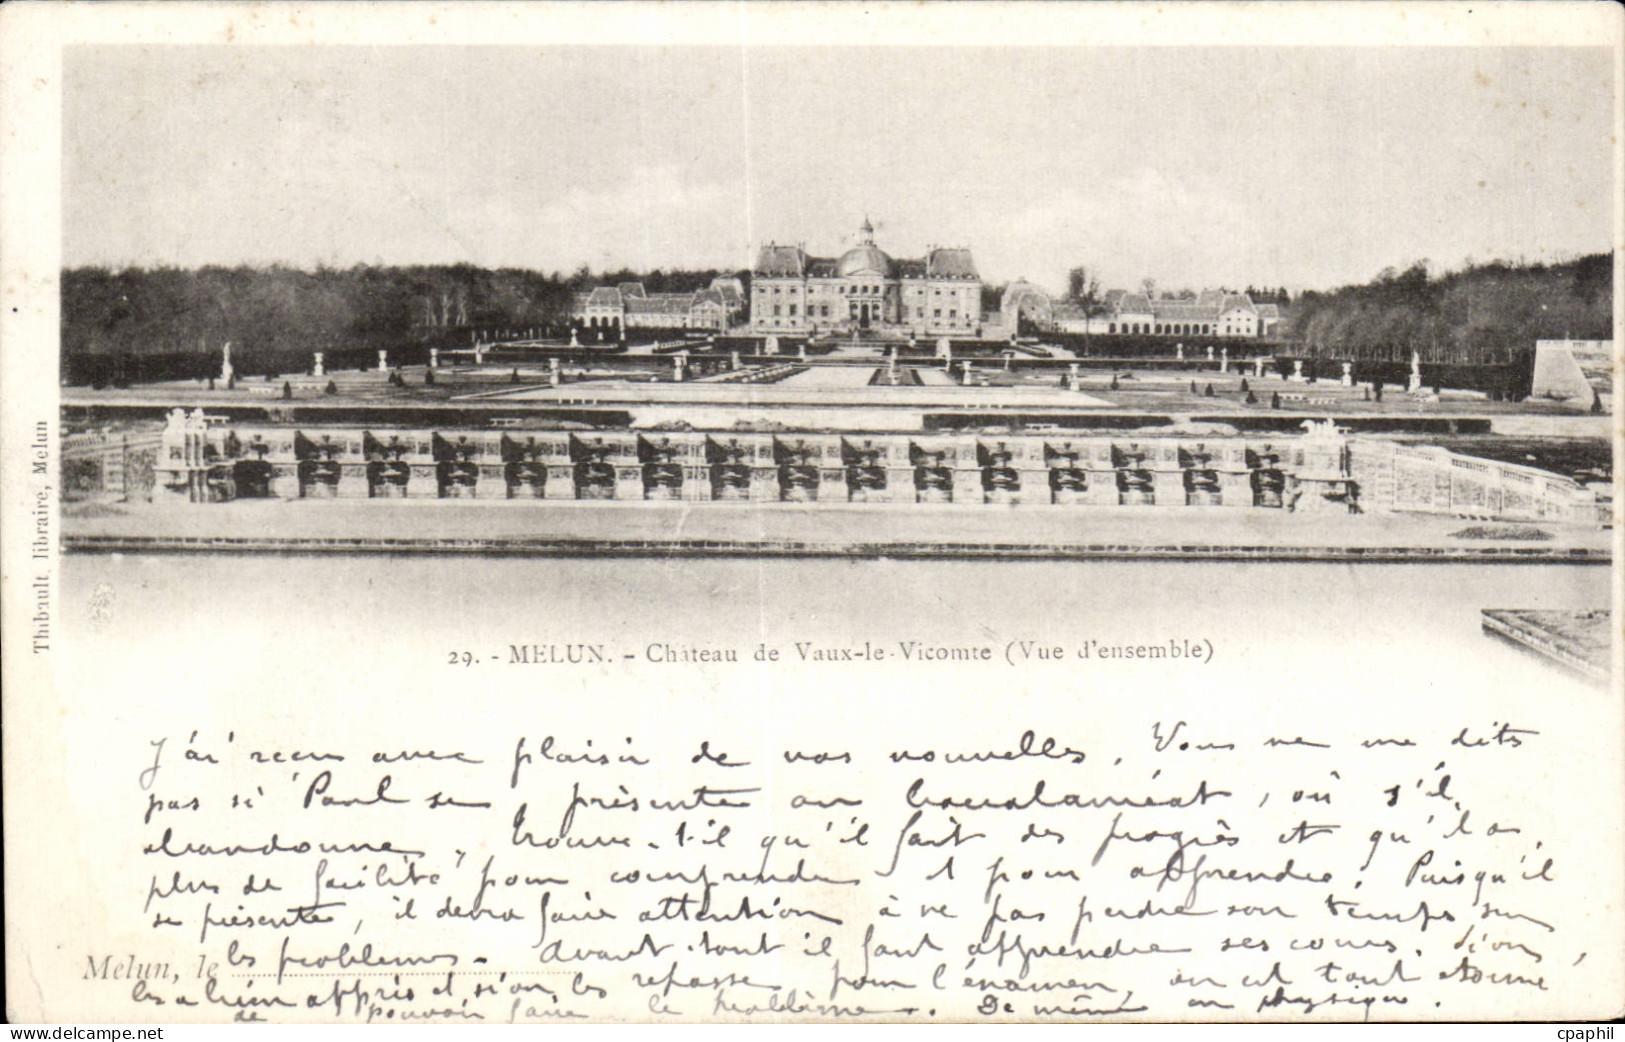 Thibault, libraire, Melun
29. - MELUN. - Château de Vaux-le-Vicomte (Vue d'ensemble)
J'ai reçu avec plaisir de vos nouvelles. Vous ne me dits
pas si Paul se présente au baccalauréat, où s'il
abandonne, trouve-t-il qu'il fait des progrès et qu'il a
plus de facilité pour comprendre et pour apprendre. Puisqu'il
se présente, il devra faire attention à ne pas perdre son temps sur
les problèmes. Avant tout il faut apprendre ses cours. Si on
Melun, le
les a bien appris et si on les repasse pour l'examen, on est tout étonné
de pouvoir faire le problème. De même en physique.
cpaphil